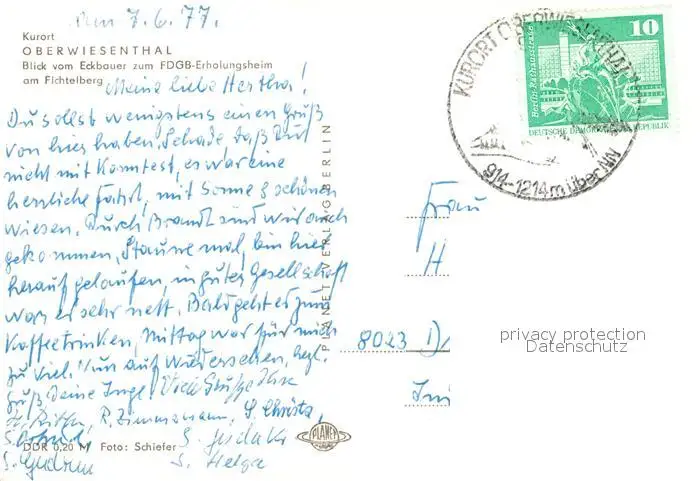 Am 7.6.77.
Kurort
OBERWIESENTHAL
Blick vom Eckbauer zum FDGB-Erholungsheim
am Fichtelberg
Meine liebe Hertha!
Du sollst wenigstens einen Gruß
von hier haben. Schade, daß Du
nicht mit konntest, es war eine
herrliche Fahrt, mit Sonne & schönen
Wiesen. Durch Brand sind wir auch
gekommen. Staune mal, bin hier
herauf gelaufen, in guter Gesellschaft
war es sehr nett. Bald geht es zum
Kaffeetrinken, Mittag war für mich
zu viel. Nun auf Wiedersehen, hzgl.
Gruß Deine Inge. Viele Grüße
R. Zimmermann, S. Christa,
S.
S. Gudrun
S. Helga
DDR 0,20 M Foto: Schiefer
PLANET-VERLAG BERLIN
PLANET
KURORT OBERWIESENTHAL
914-1214m über NN
10
Berlin-Rathausstrasse
DEUTSCHE DEMOKRATISCHE REPUBLIK
Frau
H
8023 D
privacy protection
Datenschutz